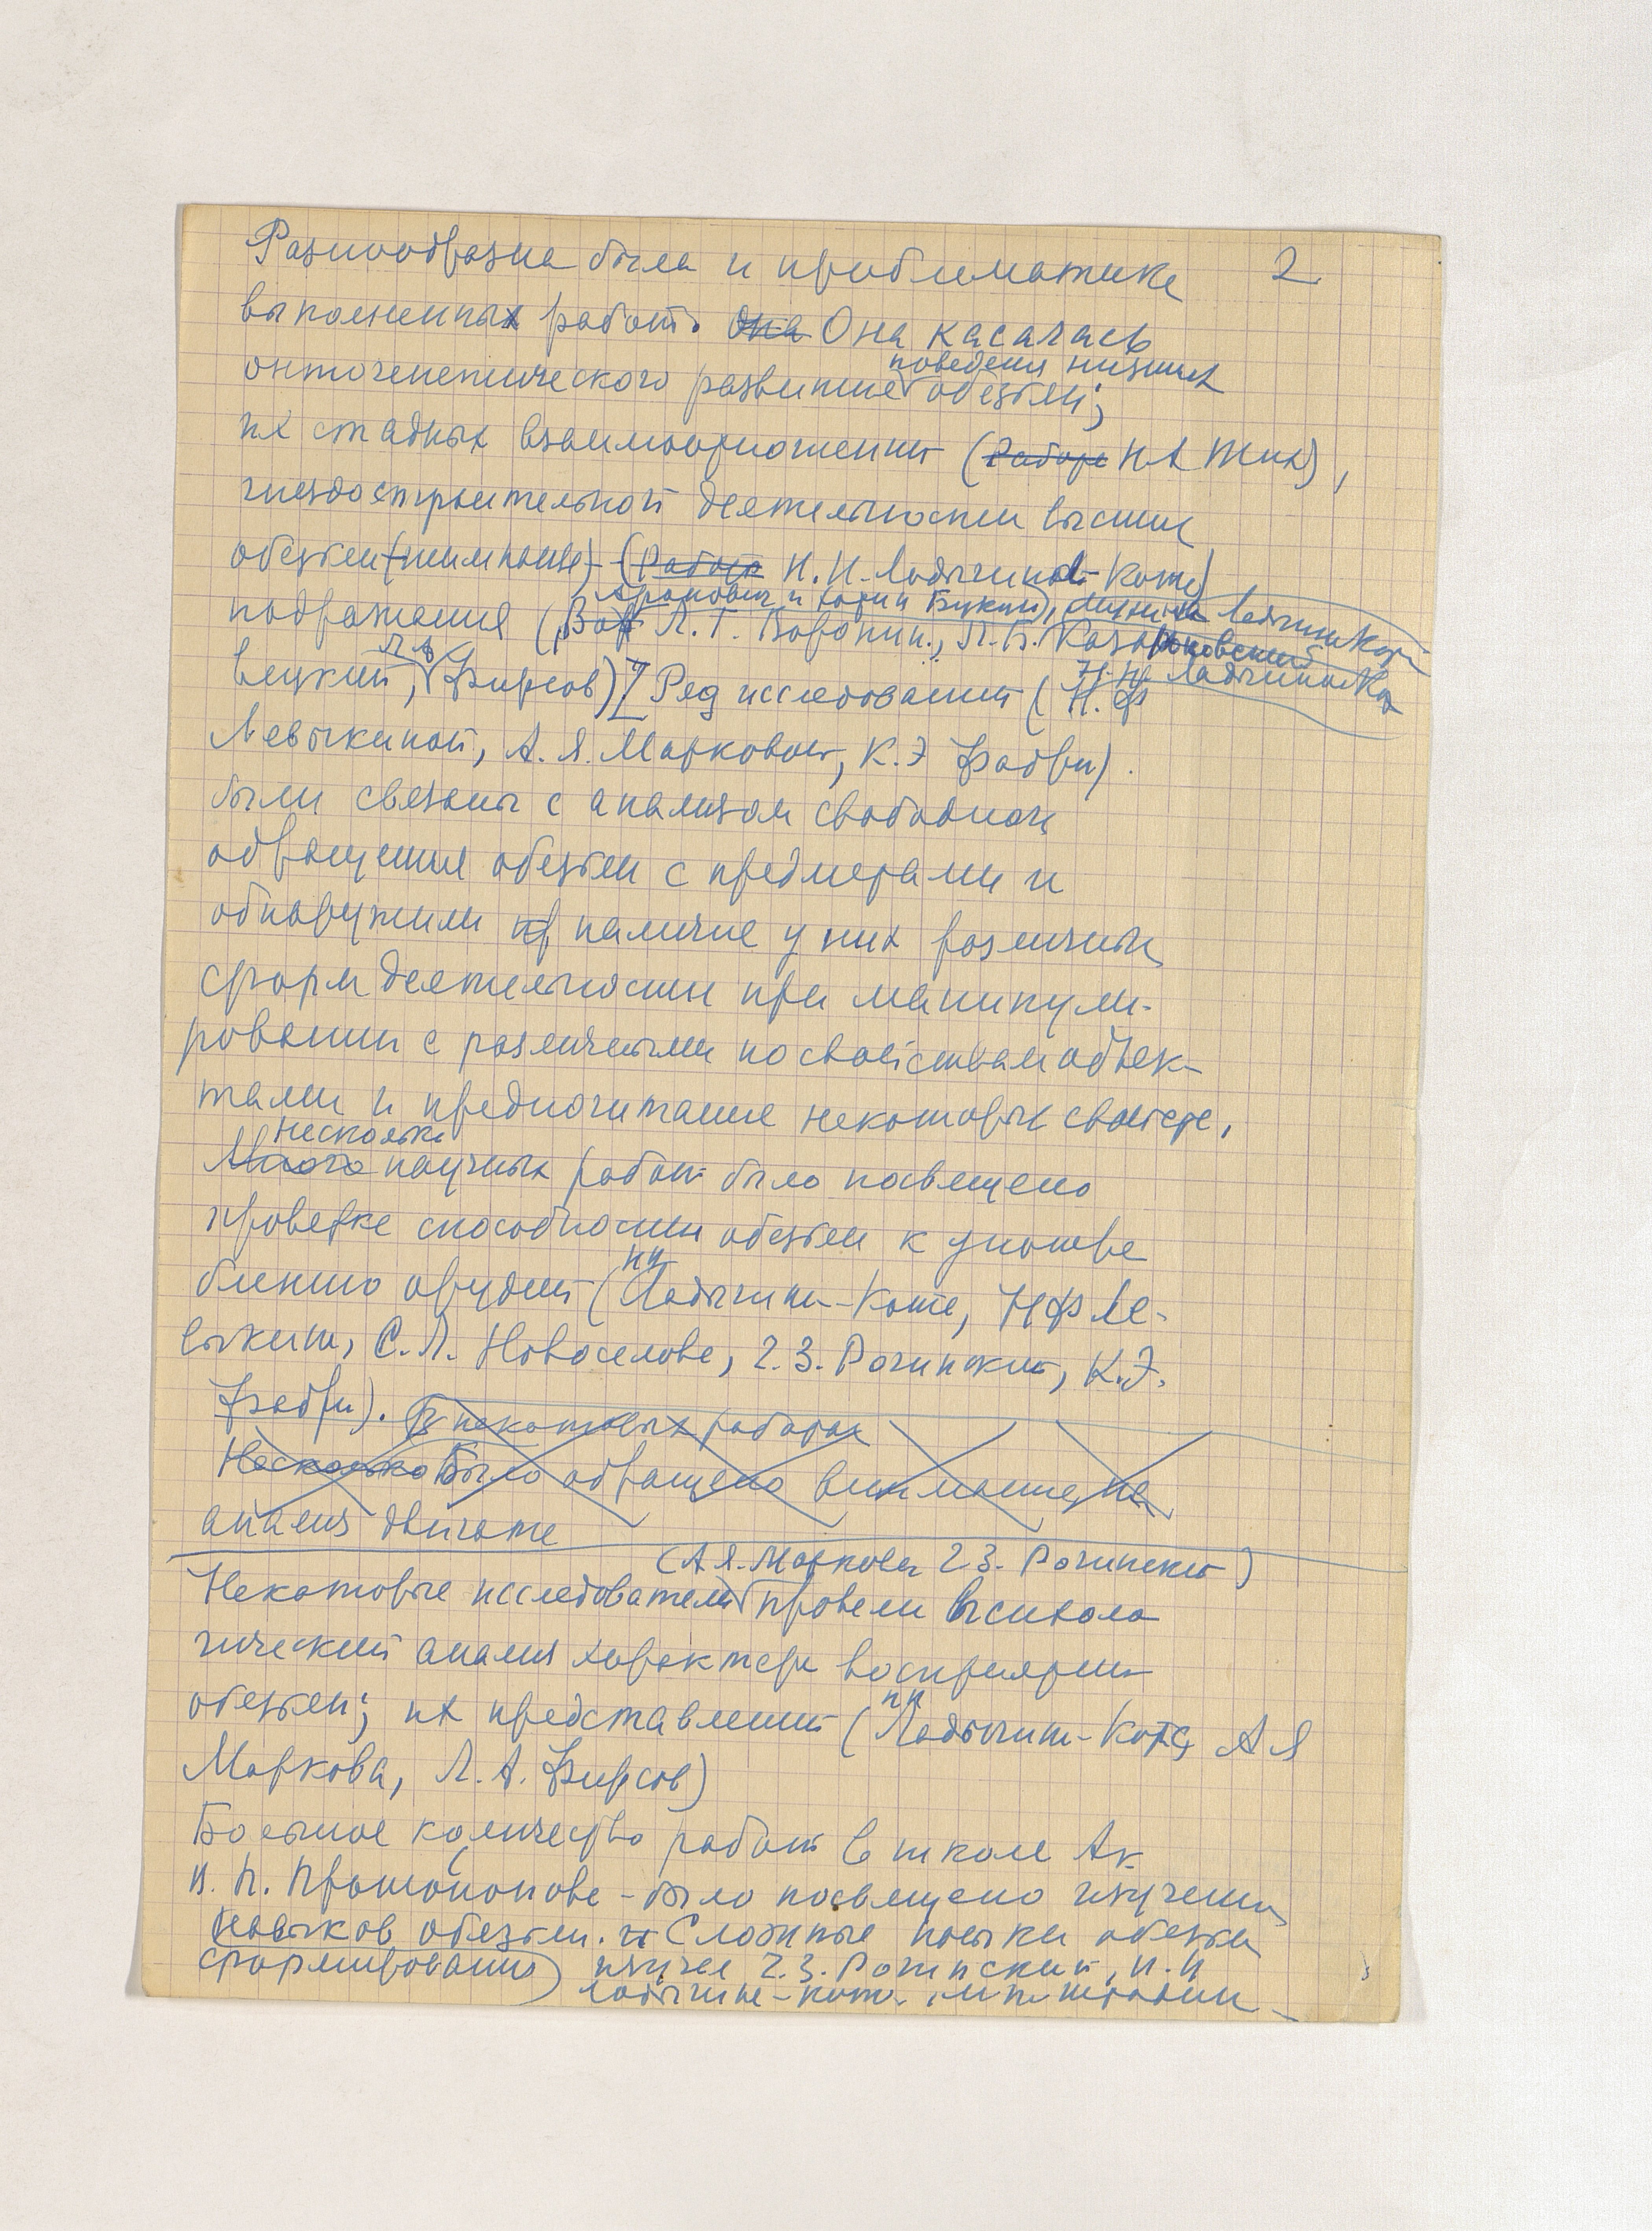 Разнообразна была и проблематика 2
выполненных работ. Она Она касалась
поведения низших
онтогенетического развития обезьян;
их стадных взаимоотношений (Работа Н А Тих),
гнездостроительной деятельности высших
обезьян (шимпанзе) (Работа Н. Н. Ладыгиной-Котс)
Аронович и Хотин Букин), Ладыгина Котс
подражания (Л. Г. Воронин.,
вецкий, Фирсов) Ряд исследований (Н. Ф
Н. Н. Ладыгина Котс
Левыкиной, А. Я. Марковой, К. Э Фабри).
были связаны с анализом свободного
обращения обезьян с предметами и
обнаружили наличие у них различных
форм деятельности при манипули-
ровании с различными по свойствам объек-
тами и предпочитание некоторых свойств.
Несколько
Много научных работ было посвящено
проверке способности обезьян к употре
блению орудий (НН Ладыгина-Котс, НФ Ле-
выкина, С. Л. Новоселова, Г. З. Рогинский, К. Э.
Фабри). В некоторых работах
Несколько Было обращено внимание на
анализ двигате
(А Я. Маркова Г З. Рогинский)
Некоторые исследователи провели психоло
гический анализ характера восприятия
обезьян; их представлений (НН Ладыгина-Котс, А Я
Маркова, Л. А. Фирсов)
Большое количество работ в школе Ак
В. П. Протопопова - было посвящено изучению
навыков обезьян. и Сложные навыки обезьян
формирования изучал Г. З. Рогинский, Н. Н
Ладыгина-Котс, М П Штодин